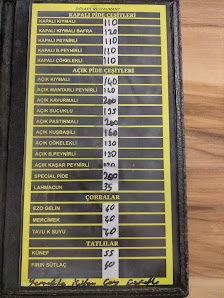 DİLAEY RESTAURANT
KAPALI PİDE ÇEŞİTLERİ
KAPALI KIYMALI 110
KAPALI KIYMALI BAFRA 120
KAPALI PEYNİRLİ 110
KAPALI B.PEYNİRLİ 110
KAPALI ÇÖKELEKLİ 110
AÇIK PİDE ÇEŞİTLERİ
AÇIK KIYMALI 140
AÇIK MANTARLI PEYNİRLİ
AÇIK KAVURMALI 200
AÇIK SUCUKLU
AÇIK PASTIRMALI 200
AÇIK KUŞBAŞILI 160
AÇIK ÇÖKELEKLİ 130
AÇIK B.PEYNİRLİ 130
AÇIK KAŞAR PEYNİRLİ
SPECIAL PİDE 200
LAHMACUR 75
ÇORBALAR
EZO GELİN 40
MERCİMEK 40
TAVU K SUYU 40
TATLILAR
KÜNEF 55
FIRIN SÜTLAÇ 40